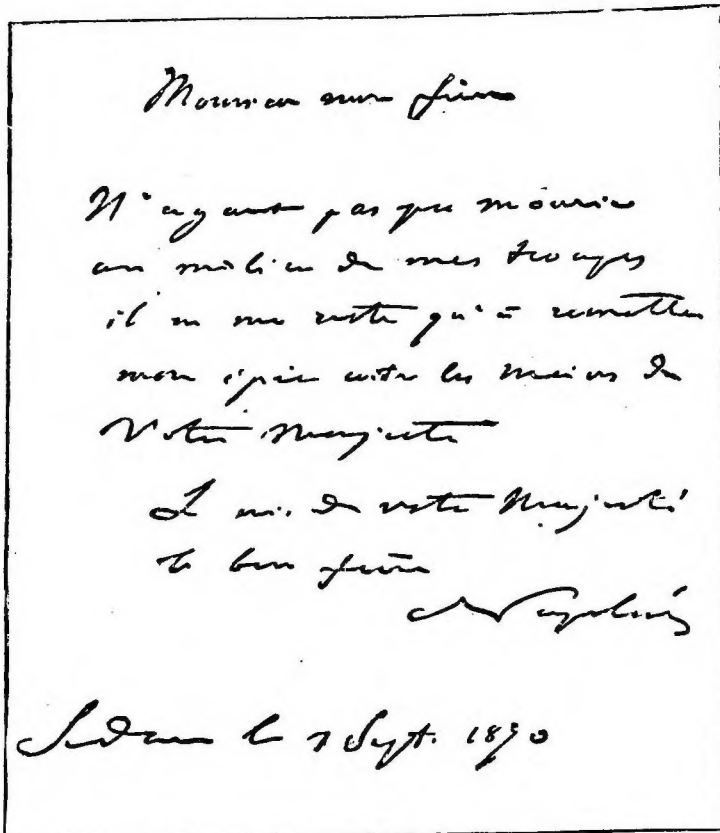 Monsieur mon frère
N'ayant pas pu mourir
au milieu de mes troupes
il ne me reste qu'à remettre
mon épée entre les mains de
Votre Majesté
Je suis de votre Majesté
le bon frère
Napoléon
Sedan le 1 Sept. 1870